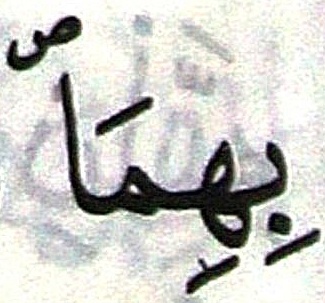 بِهِمَا ۖ ص